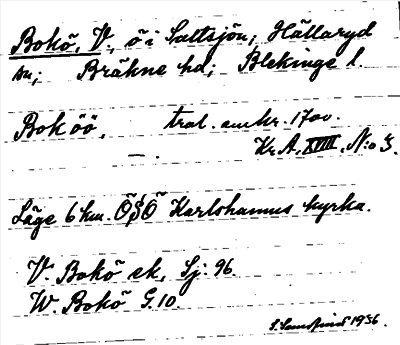 Bokö, V., ö i Saltsjön; Hällaryd
sn; Bräkne hd; Blekinge l.
Boköö, trol. omkr. 1700.
—. Kr.A. XVIII. N:o 3.
Läge 6 km. ÖSÖ Karlshamns kyrka.
V. Bokö ek, Sj. 96.
W. Bokö G.10.
1936.